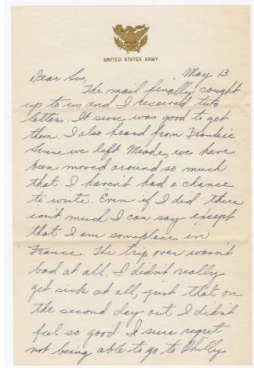 UNITED STATES ARMY
May 13
Dear Sis,
The mail finally caught
up to us and I received two
letters. It sure was good to get
them. I also heard from Frankie
Since we left Meade, we have
been moved around so much
that I haven't had a chance
to write. Even if I did there
isn't much I can say except
that I am someplace in
France. The trip over wasn't
bad at all. I didn't really
get sick at all, just that on
the second day out I didn't
feel so good. I sure regret
not being able to go to Philly